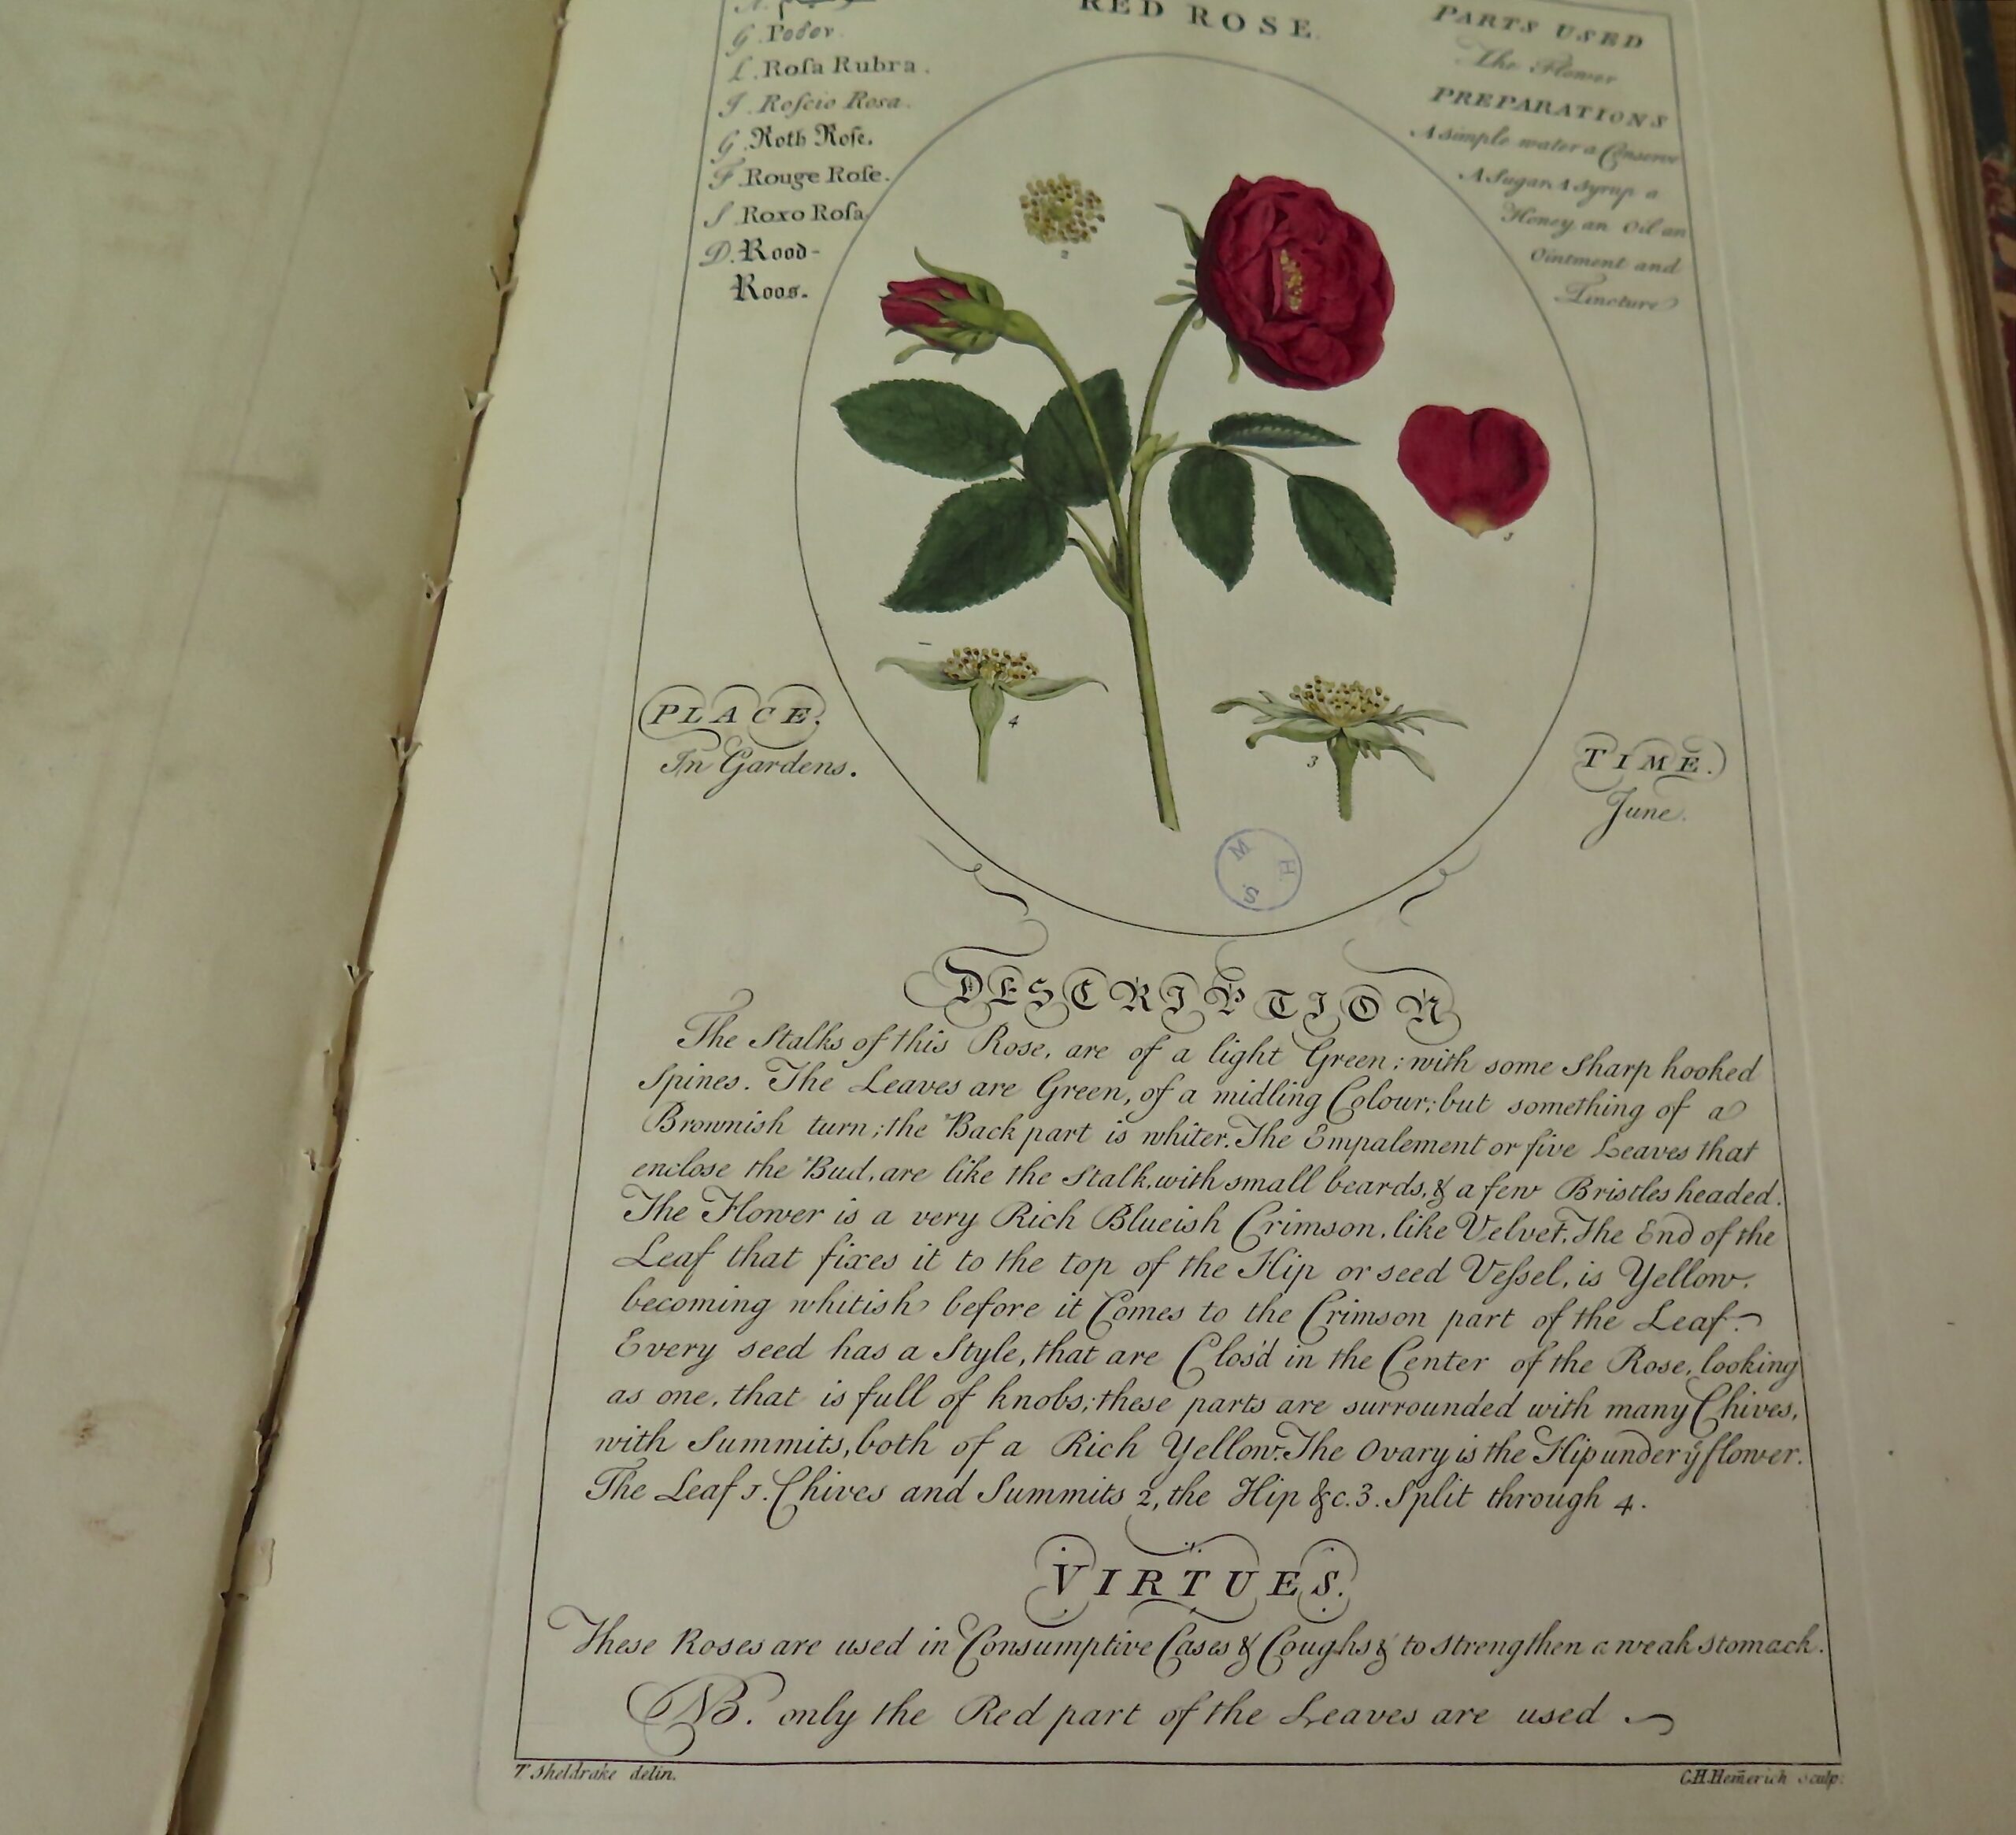 RED ROSE
G. Ροδον.
L. Roſa Rubra.
I. Roſcio Rosa.
G. Roth Roſe.
F. Rouge Roſe.
S. Roxo Roſa
D. Rood-
Roos.
PARTS USED
The Flower
PREPARATIONS
A simple water a Conserve
A Sugar A Syrup a
Honey an Oil an
Ointment and
Tincture
2
5
4
3
PLACE.
In Gardens.
TIME.
June.
M H S
DESCRIPTION
The Stalks of this Rose, are of a light Green; with some Sharp hooked
Spines. The Leaves are Green, of a midling Colour; but something of a
Brownish turn; the Back part is whiter. The Empalement or five Leaves that
enclose the Bud, are like the Stalk, with small beards, & a few Bristles headed.
The Flower is a very Rich Blueish Crimson, like Velvet. The End of the
Leaf that fixes it to the top of the Hip or seed Veſsel, is Yellow,
becoming whitish before it Comes to the Crimson part of the Leaf.
Every seed has a Style, that are Clos'd in the Center of the Rose, looking
as one, that is full of knobs; these parts are surrounded with many Chives,
with Summits, both of a Rich Yellow. The Ovary is the Hip under ẏ flower.
The Leaf 5. Chives and Summits 2, the Hip &c. 3. Split through 4.
VIRTUES.
These Roses are used in Consumptive Cases & Coughs & to strengthen a weak stomack.
NB. only the Red part of the Leaves are used
T. Sheldrake delin.
C.H. Hem̅erich sculp.